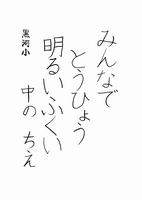 みんなで
とうひょう
明るいふくい
黒河小 中の ちえ